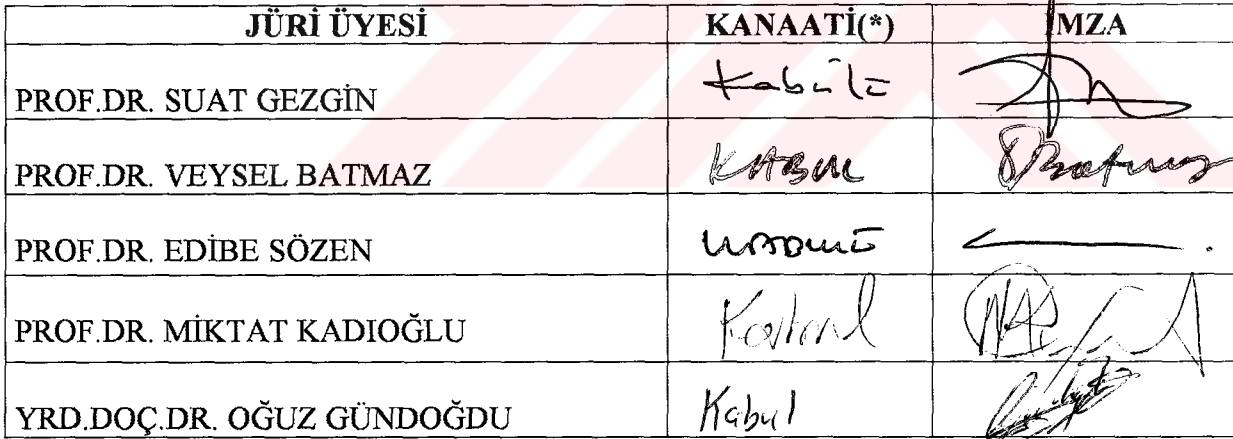 JÜRİ ÜYESİ KANAATİ(*) İMZA
PROF.DR. SUAT GEZGİN Kabulü
PROF.DR. VEYSEL BATMAZ KABUL
PROF.DR. EDİBE SÖZEN
PROF.DR. MİKTAT KADIOĞLU
YRD.DOÇ.DR. OĞUZ GÜNDOĞDU Kabul